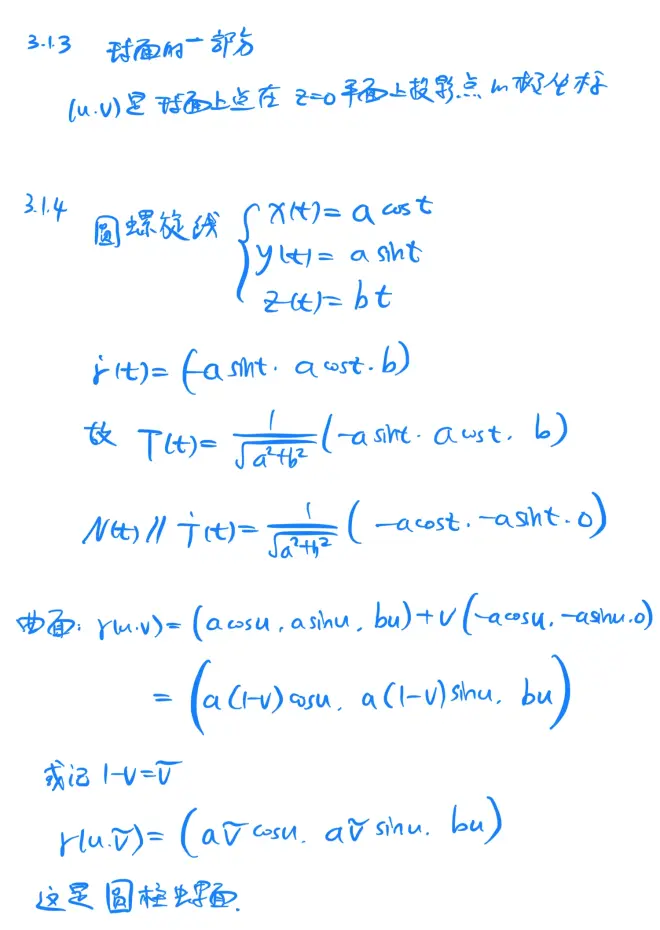 3.1.3 球面的一部分
(u.v)是球面上点在 z=0平面上投影点的极坐标
3.1.4 圆螺旋线 { x(t)= a cost
y(t)= a sint
z(t)= bt
ṙ(t)= (-a sint. a cost. b)
故 T(t)= 1/√(a²+b²) (-a sint. a cost. b)
N(t) // Ṫ(t)= 1/√(a²+b²) ( -a cost. -a sint. 0)
曲面: r(u.v)= (a cosu, a sinu, bu)+v(-a cosu, -a sinu.0)
= (a(1-v) cosu, a(1-v) sinu, bu)
或记 1-v=ṽ
r(u.ṽ)= (aṽ cosu. aṽ sinu. bu)
这是圆柱螺面.